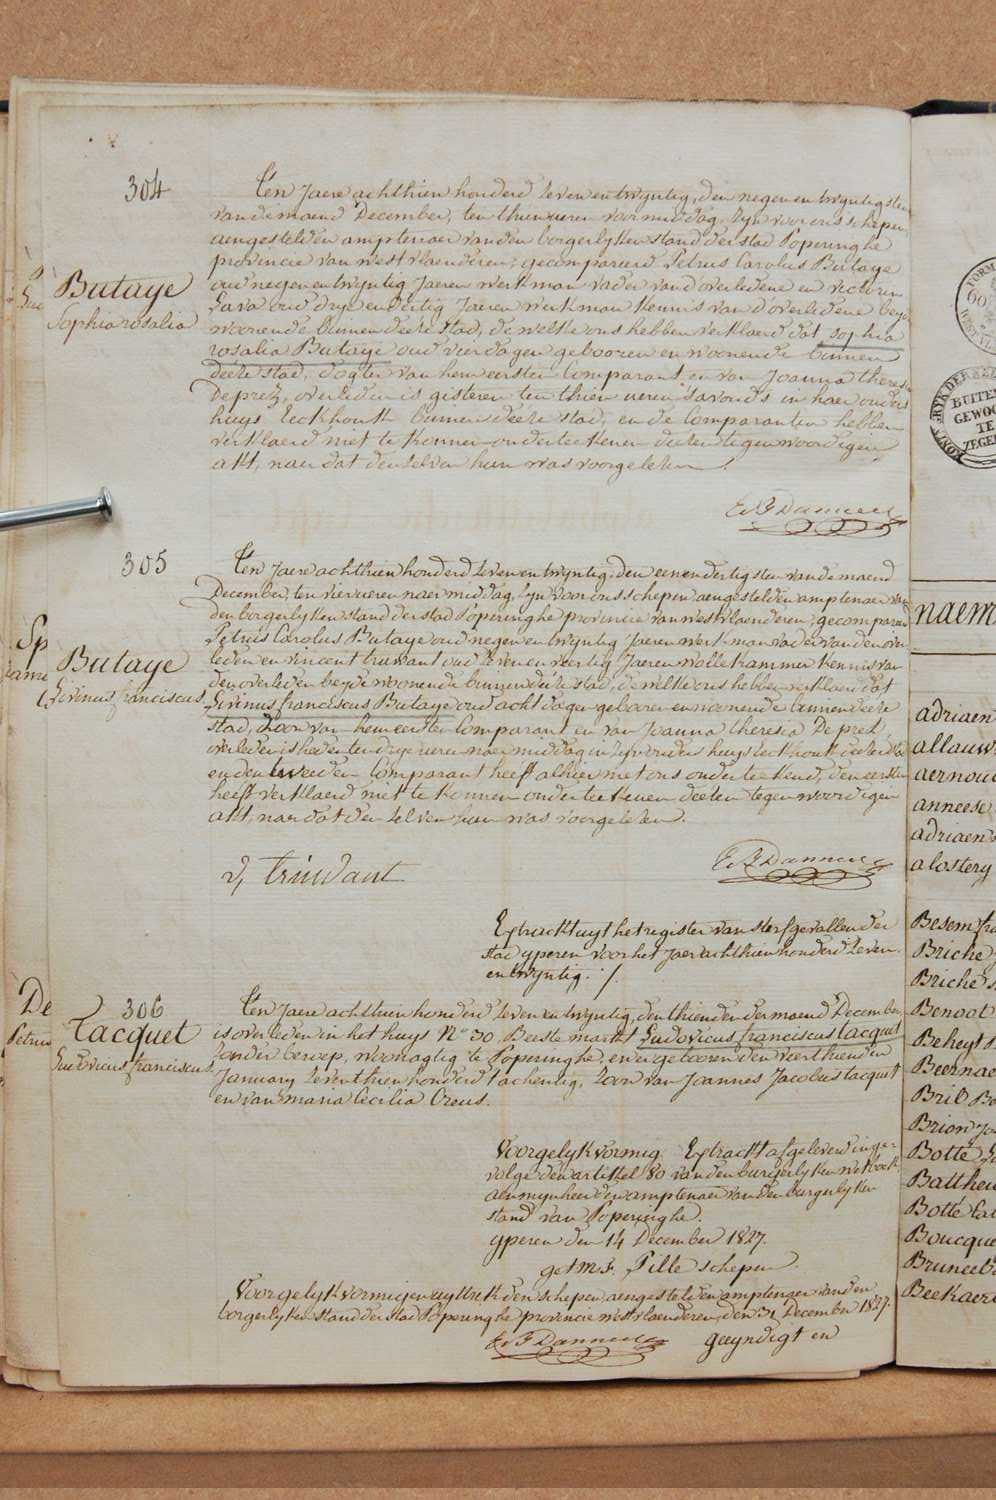 304
Butaye
Sophia rosalia
Ten Jaere achthien honderd zeven en twyntig, den negen en twyntigsten
van de maend December, ten thien ueren voormiddag, Zyn voor ons schepen,
aengestelden amptenaer van den borgerlyken stand der stad Poperinghe
provincie van westvlaenderen; gecompareerd Petrus Carolus Butaye
oud negen en twyntig Jaeren werkman vader van d'overledene en victorin
Lava oud dryendertig Jaeren werkman kennis van d'overledene beyde
woonende binnen deeze stad, de welke ons hebben verklaerd dat sophia
rosalia Butaye oud vier dagen gebooren en woonende binnen
deeze stad, dogter van hem eersten Comparant en van Joanna theresia
Deprez, overleden is gisteren ten thien ueren s'avonds in haer ouders
huys Eeckhoutk binnen deeze stad, en de Comparanten hebben
verklaerd niet te konnen onderteekenen deezen tegenwoordigen
akt, naer dat den zelven hun was voorgelezen.
E. F Danneel
305
Butaye
Livinus franciscus
Ten Jaere achthien honderd zeven en twyntig, den een en dertigsten van de maend
December, ten vier ueren naermiddag, Zyn voor ons schepen aengestelden amptenaer van
den borgerlyken stand der stad Poperinghe provincie van westvlaenderen; gecompareerd
Petrus Carolus Butaye oud negen en twyntig Jaeren werkman vader van den over
leden en vincent truwant oud zeven en veertig Jaeren wollekammer kennis van
den overleden beyde woonende binnen deeze stad, de welke ons hebben verklaerd dat
Livinus franciscus Butaye oud acht dagen gebooren en woonende binnen deeze
stad, Zoon van hem eersten Comparant en van Joanna theresia Deprez,
overleden is heden ten drye ueren naermiddag in Zyn ouders huys Eeckhoutk deeze stad
en den tweeden Comparant heeft alhier met ons onderteekend, den eersten
heeft verklaerd niet te konnen onderteekenen deezen tegenwoordigen
akt, naer dat den zelven hun was voorgelezen.
V, truwant
E. F Danneel
Extrackt uyt het register van sterfgevallen der
stad yperen voor het Jaer achthien honderd zeven
en twyntig. /.
306
Tacquet
Ludovicus franciscus
Ten Jaere achthien honderd zeven en twyntig, den thienden der maend December,
is overleden in het huys No 30 Beeste markt Ludovicus franciscus tacquet
zonder beroep, woonagtig te Poperinghe, en er gebooren den veerthienden
January zeventhien honderd tachentig, zoon van Joannes Jacobus tacquet
en van maria Cecilia Creus.
Voorgelykvormig Extrackt afgeleverd inge-
volge den artikkel 80 van den burgerlyken wetboek
aen mynheer den amptenaer van den burgerlyken
stand van Poperinghe.
yperen den 14 December 1827.
get M.F. Pille schepen
Voor gelykvormigen uyttrek den schepen aengestelden amptenaer van den
borgerlyken stand der stad Poperinghe provincie westvlaenderen, den 31 December 1827.
E. F Danneel
geeyndigt en
naem
adriaen
allauw
aernou
anneese
adriaen
alostery
Besem fra
Briche
Briche
Benoot
Beheyt
Beernae
Bril
Brion
Botte
Battheu
Botté
Boucque
Bruneel
Beekaer
BUITEN
GEWOO
TE
ZEGEL